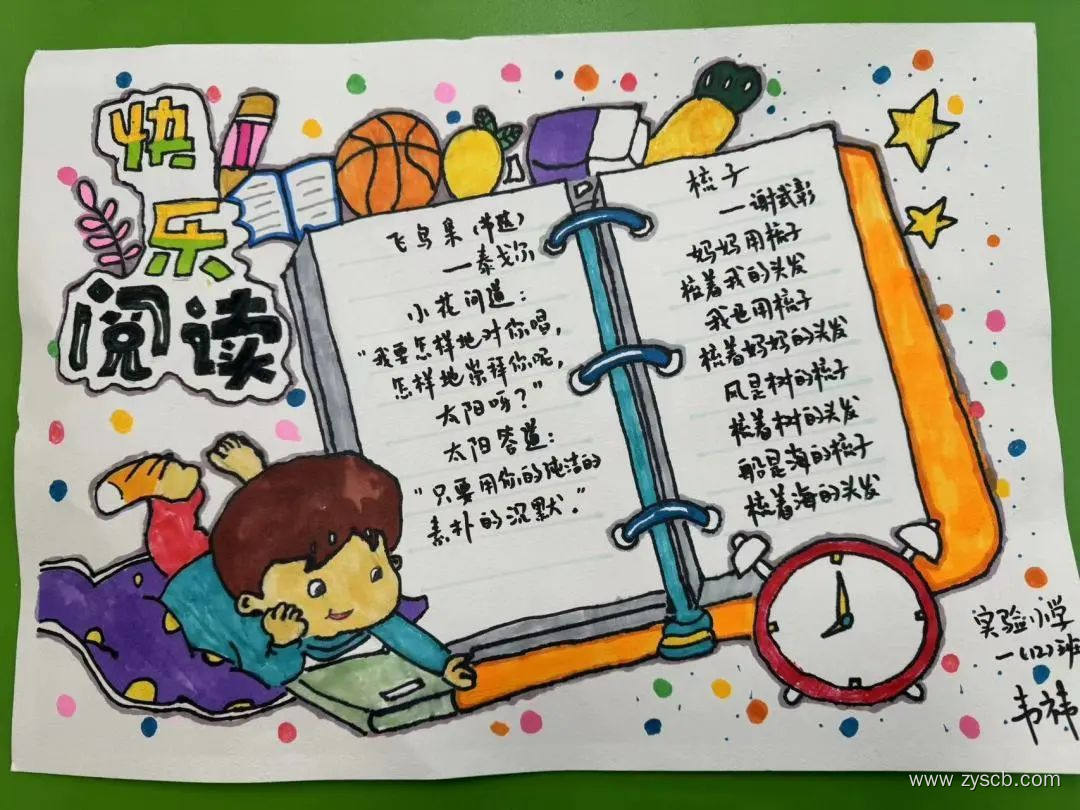 快
乐
阅读
飞鸟集(节选)
—泰戈尔
小花问道：
“我要怎样地对你唱，
怎样地崇拜你呢，
太阳呀？”
太阳答道：
“只要用你的纯洁的
素朴的沉默。”
梳子
—谢武彰
妈妈用梳子
梳着我的头发
我也用梳子
梳着妈妈的头发
风是树的梳子
梳着树的头发
船是海的梳子
梳着海的头发
实验小学
一(12)班
韦祎
www.zyscb.com